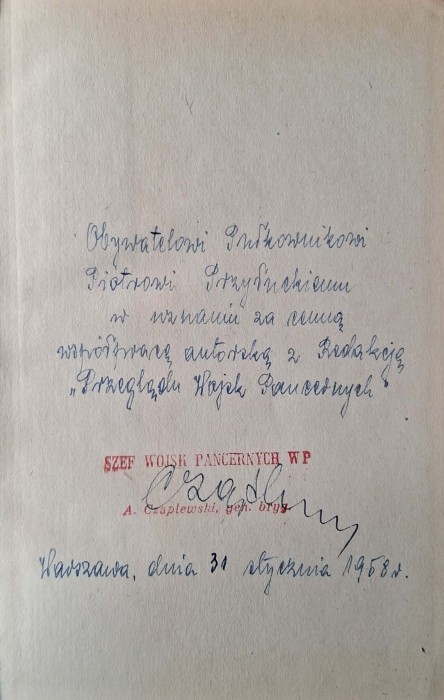 Obywatelowi Pułkownikowi
Piotrowi Przyłuckiemu
w uznaniu za cenną
współpracę autorską z Redakcją
„Przeglądu Wojsk Pancernych"
SZEF WOJSK PANCERNYCH WP
A. Czaplewski, gen. bryg.
Warszawa, dnia 31 stycznia 1958 r.